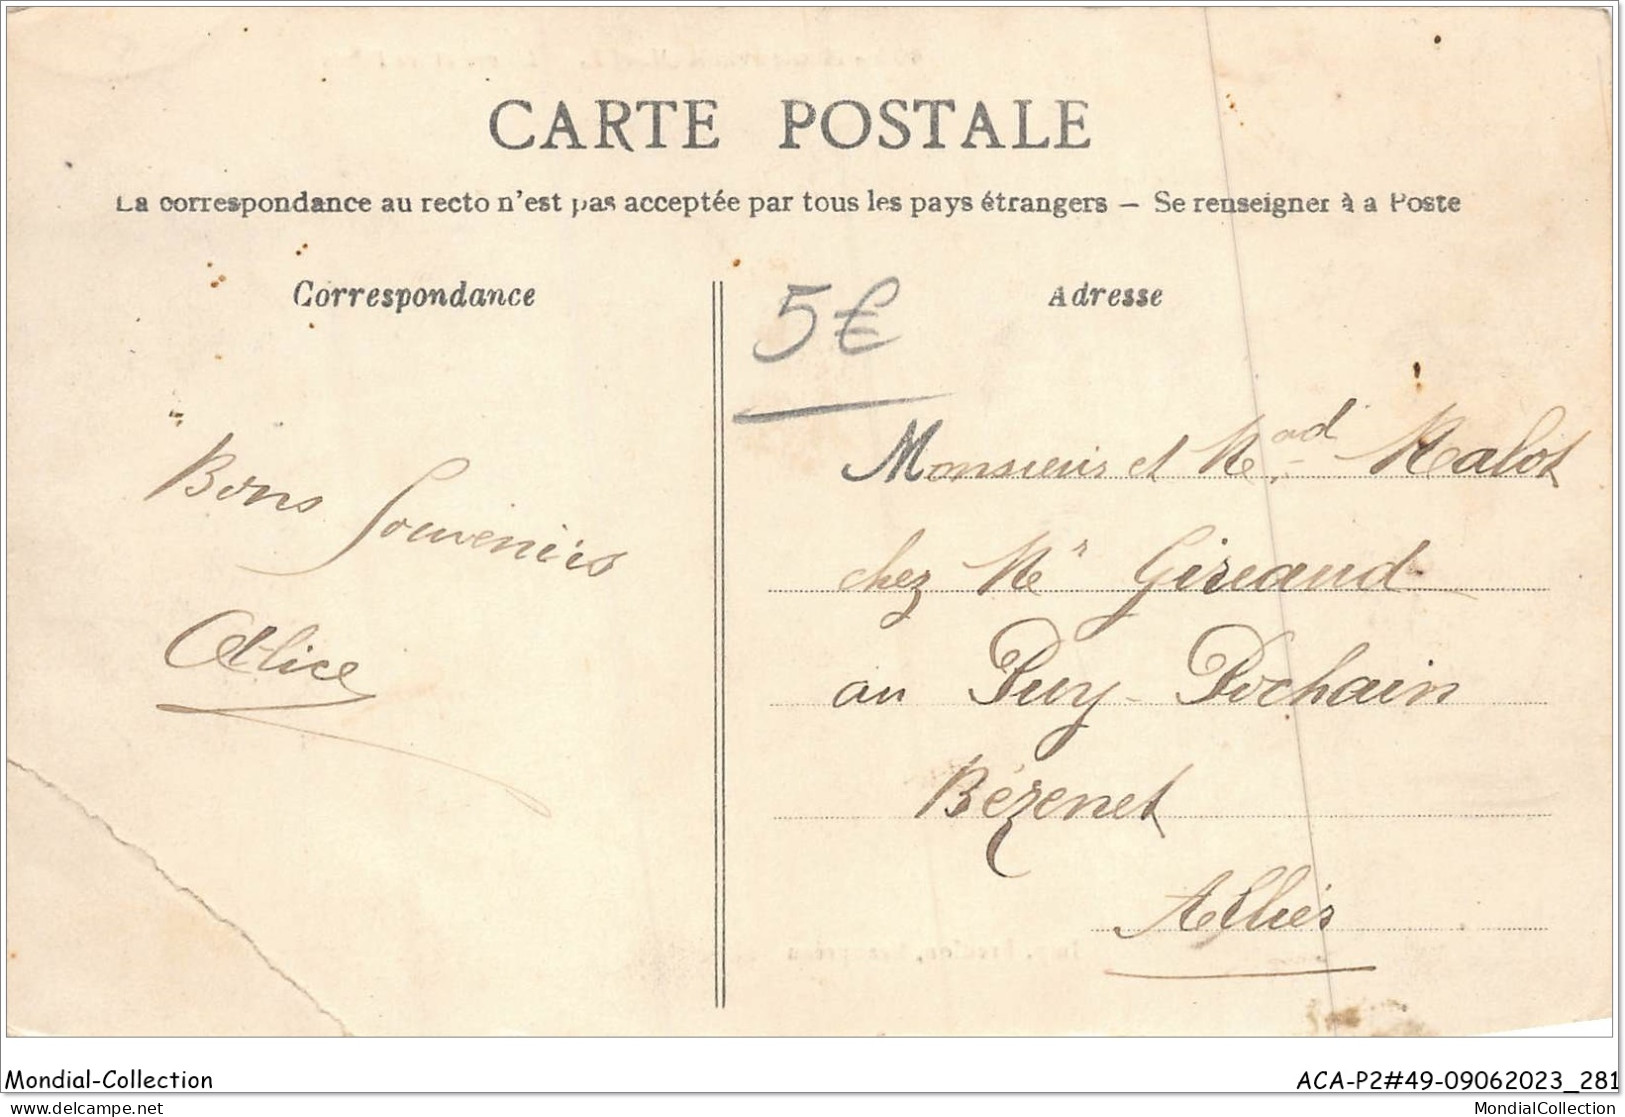 CARTE POSTALE
La correspondance au recto n'est pas acceptée par tous les pays étrangers — Se renseigner à a Poste
Correspondance
Adresse
5€
Bons Souvenirs
Alice
Monsieur et Mad Malot
chez Mr Giraud
au Puy-Pochain
Bézenet
Allier
Mondial-Collection
ACA-P2#49-09062023_281
delcampe.net
MondialCollection